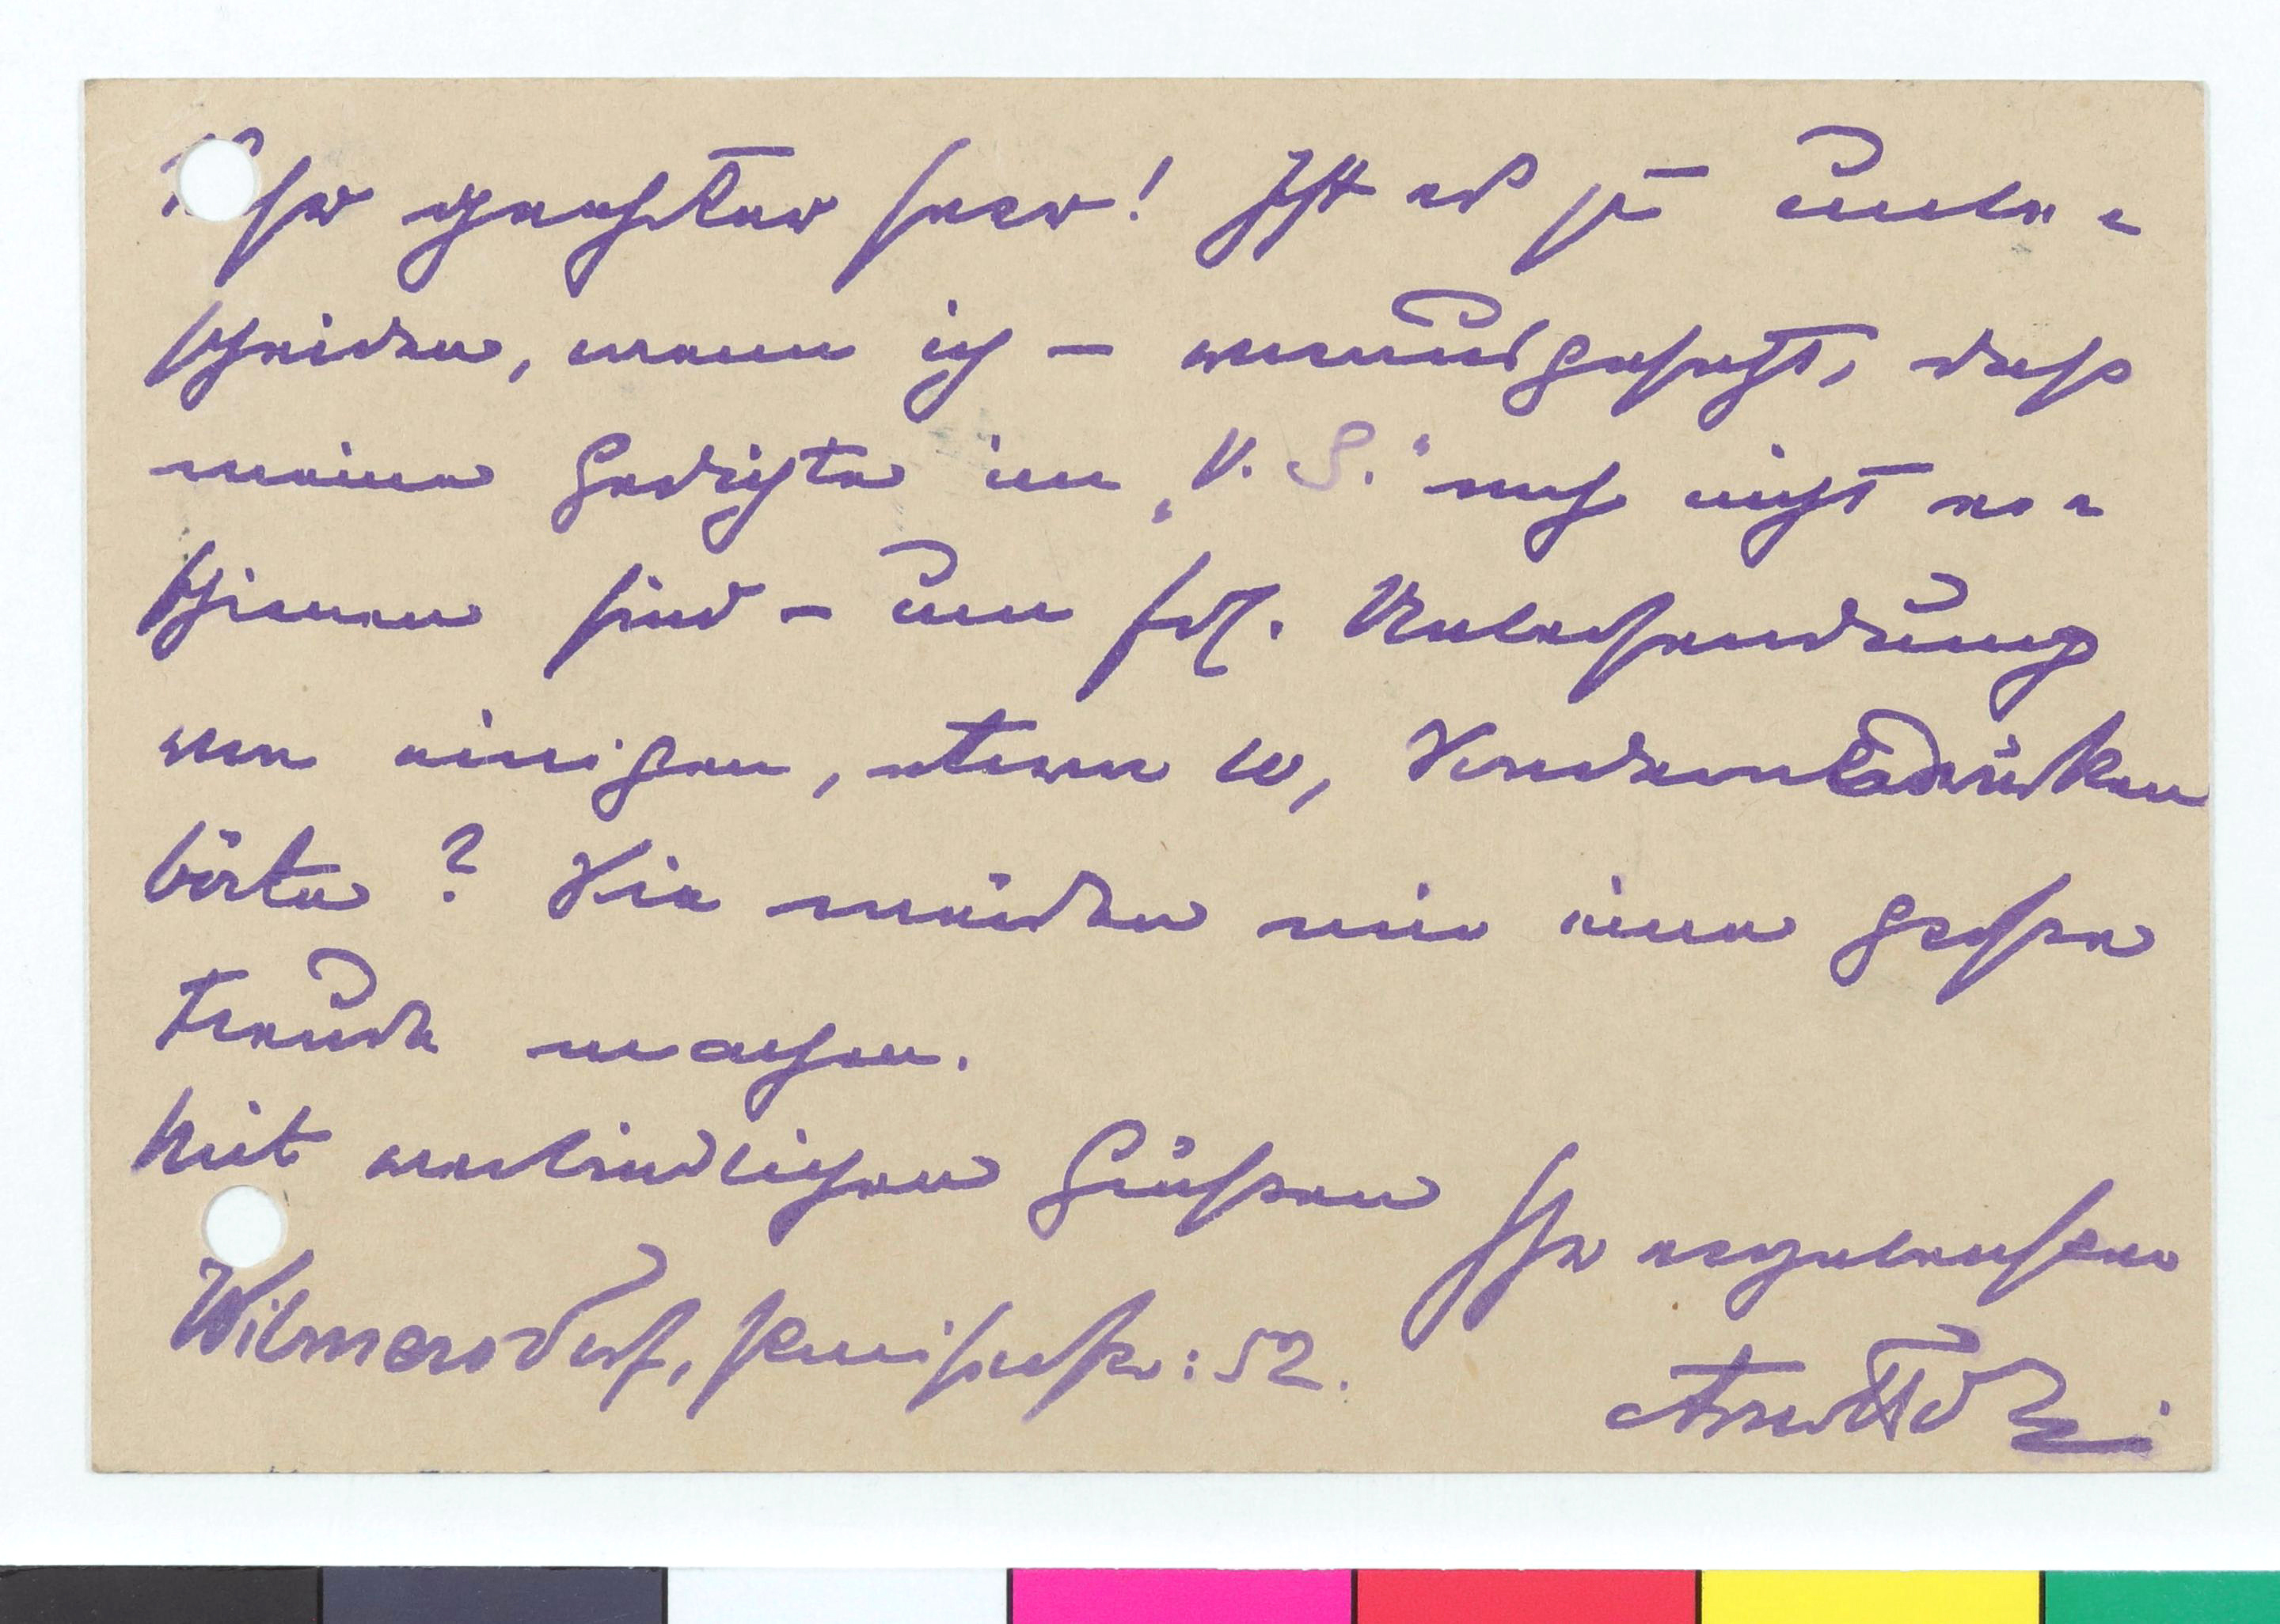 Sehr geehrter Herr! Ist es zu unbe-
scheiden, wenn ich – vorausgesetzt, dass
meine Gedichte im „V. S." noch nicht er-
schienen sind – um frdl. Uebersendung
von einigen, etwa 10, Sonderabdrücken
bitte? Sie würden mir eine große
Freude machen.
Mit verbindlichen Grüßen
Ihr ergebenster
Wilmersdorf, 52.